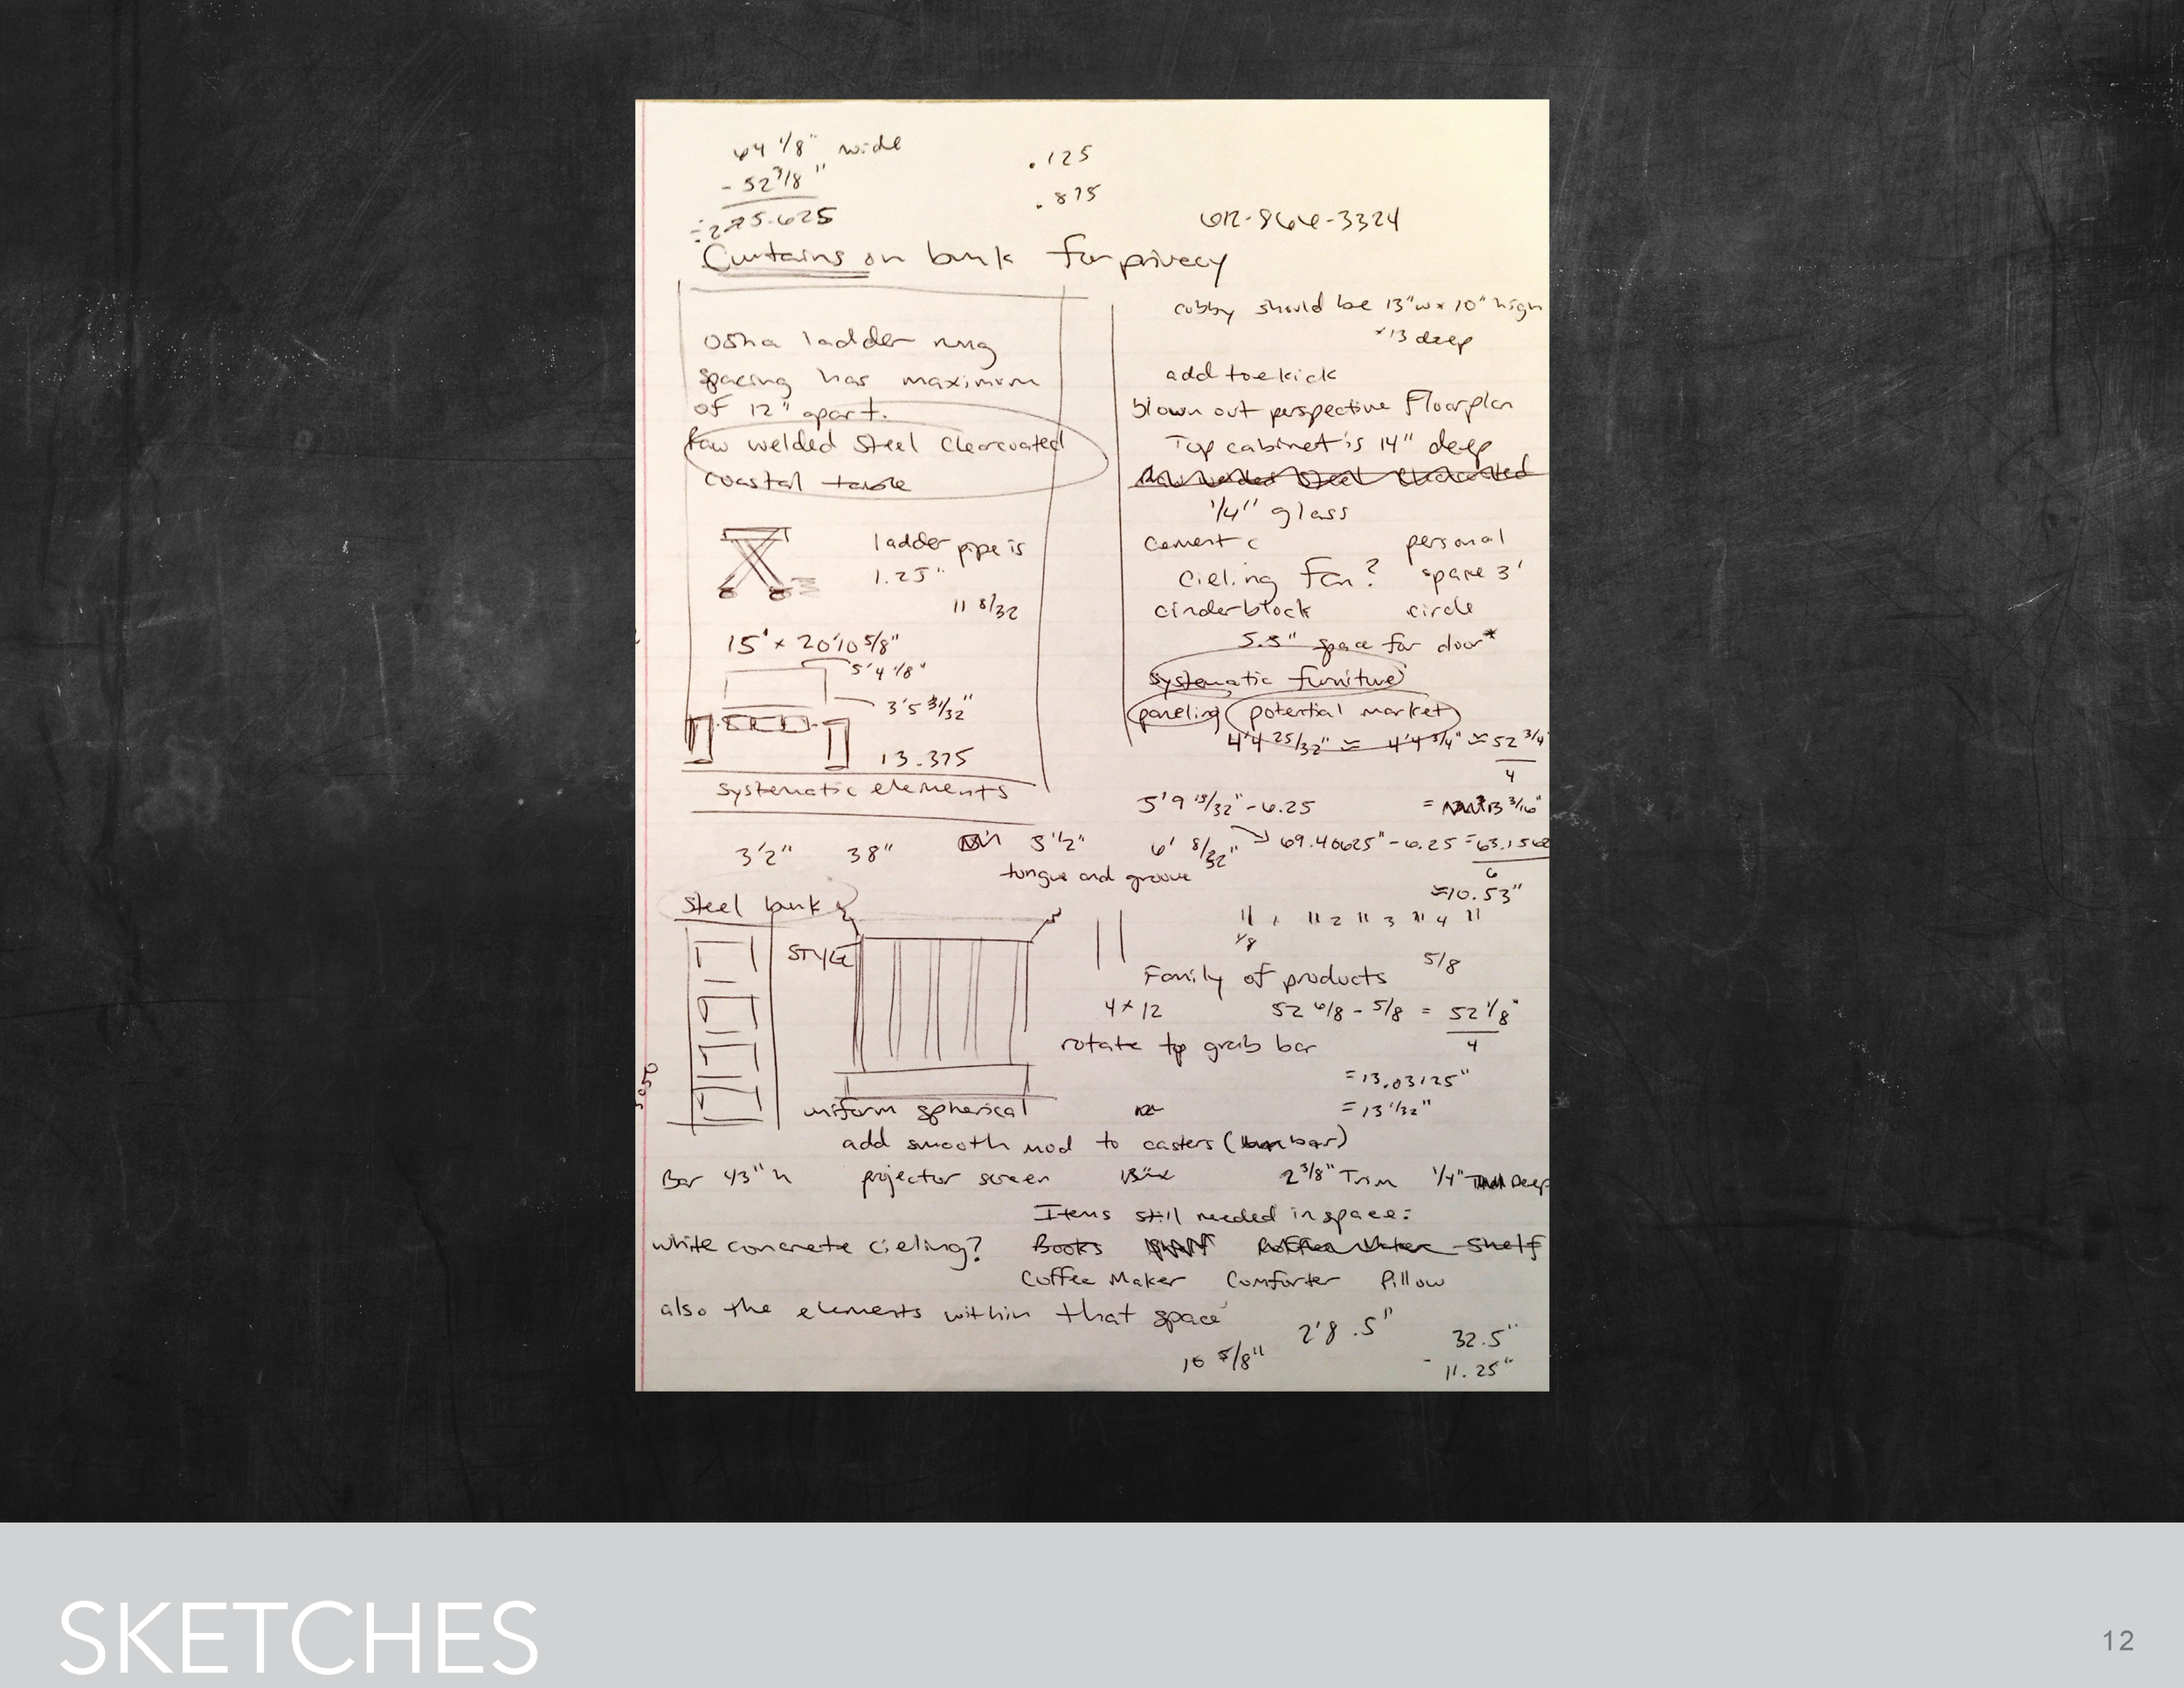 64 1/8" wide
- 52 3/8"
.125
.875
612-866-3324
Curtains on bunk for privacy
osha ladder rung
spacing has maximum
of 12" apart.
Raw welded Steel Clearcoated
coastal table
ladder pipe is
1.25"
11 8/32
15' x 20'10 5/8"
5'4 1/8"
3'5 31/32"
13.375
systematic elements
cubby should be 13"w x 10" high
x 13 deep
add toe kick
blown out perspective Floorplan
Top cabinet is 14" deep
Raw welded Steel Clearcoated
1/4" glass
cement c
personal
cieling Fan?
space 3'
cinderblock
circle
5.5" space for door*
systematic furniture
paneling potential market
4'4 25/32" ≈ 4'4 3/4" ≈ 52 3/4"
4
5'9 13/32" - 6.25
= 13 3/16"
3'2" 38"
5'2"
6' 8/32"
69.40625" - 6.25 = 63.156
6
tongue and groove
≈10.53"
Steel bunk
STYLE
" 1 " 2 " 3 " 4 "
1/8
5/8
Family of products
4 x 12
52 6/8 - 5/8 = 52 1/8"
4
rotate top grab bar
= 13.03125"
= 13 1/32"
uniform spherical
add smooth mod to casters (bar)
Bar 43" h projector screen
2 3/8" Trim 1/4" Deep
Items still needed in space:
white concrete cieling? Books Coffee Maker Shelf
Coffee Maker Comforter Pillow
also the elements within that space
2'8.5"
32.5"
10 5/8"
- 11.25"
SKETCHES
12